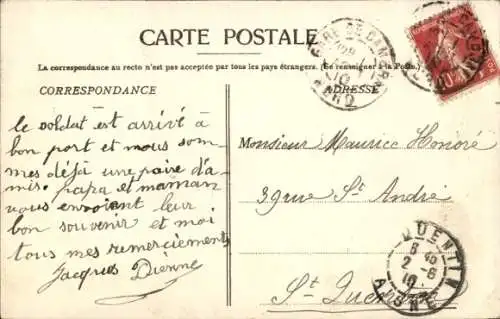 CARTE POSTALE
La correspondance au recto n'est pas acceptée par tous les pays étrangers. (Se renseigner à la Poste.)
CORRESPONDANCE
ADRESSE
le soldat est arrivé à
bon port et nous som
mes déjà une paire d'a-
mis. papa et maman
vous envoient leur
bon souvenir et moi
tous mes remerciements
Jacques Diènne
Monsieur Maurice Honoré
39 rue St André
St Quentin
QUENTIN
2-6
10
AISNE